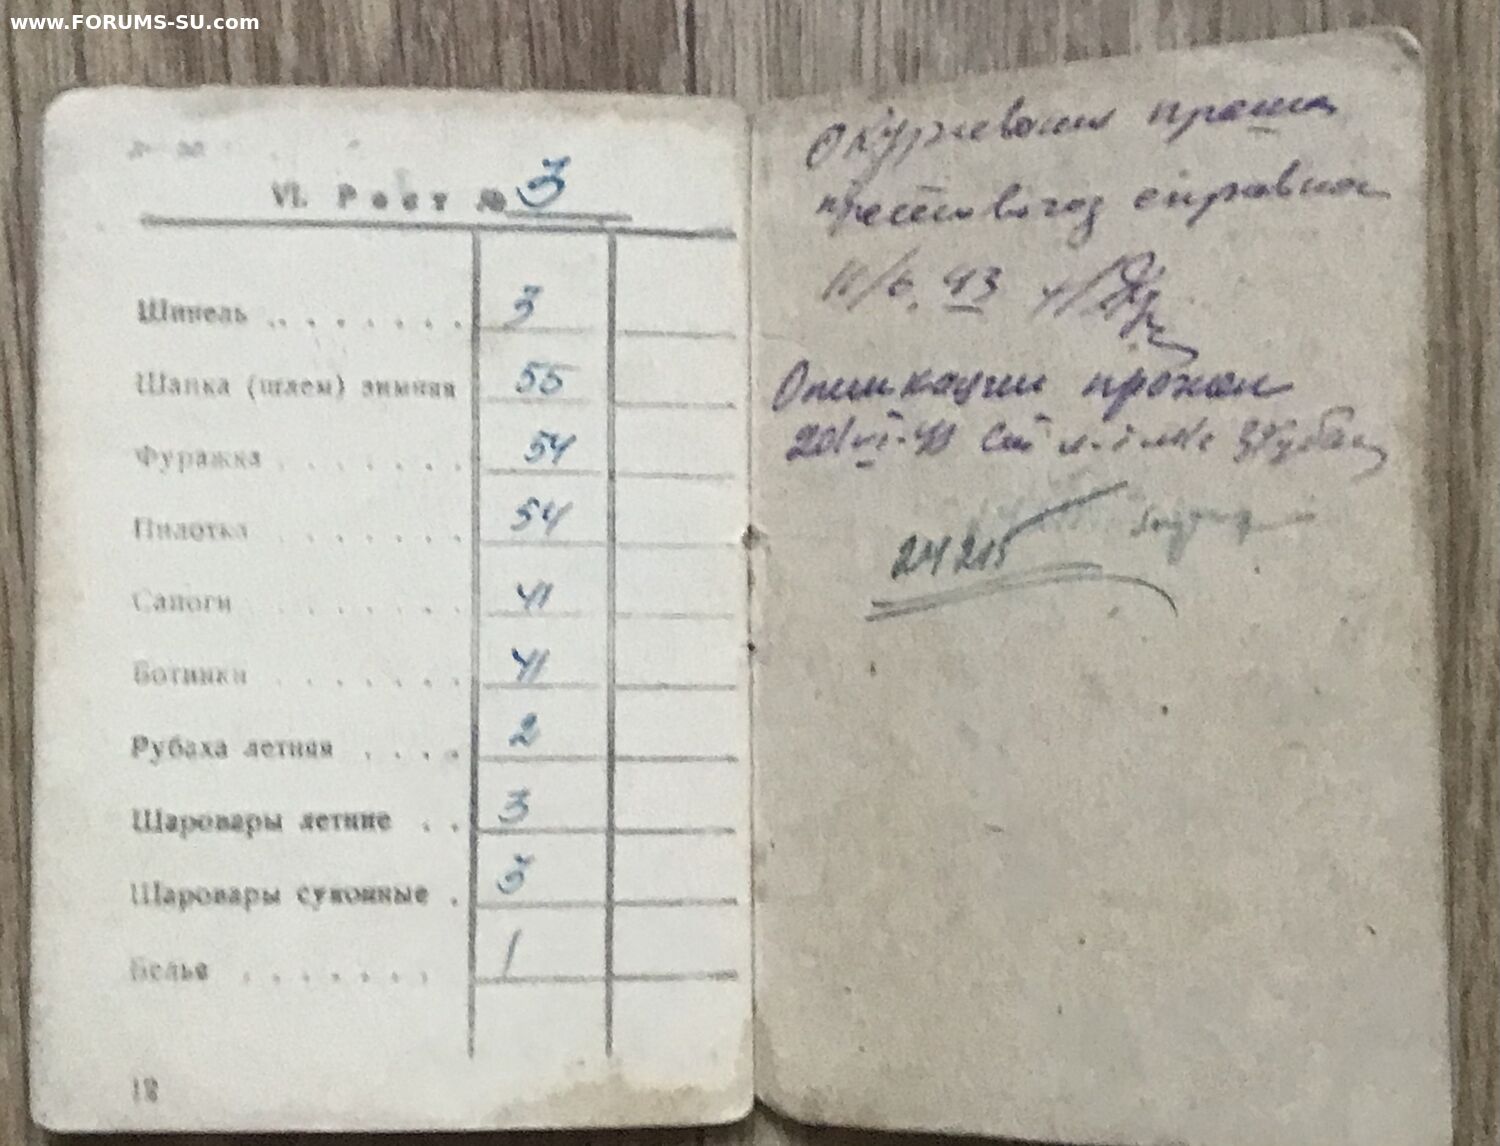 www.FORUMS-SU.com
VI. Рост № 3
Шинель . . . . . . . 3
Шапка (шлем) зимняя 55
Фуражка . . . . . . . 54
Пилотка . . . . . . . 54
Сапоги . . . . . . . 41
Ботинки . . . . . . . 41
Рубаха летняя . . . . 2
Шаровары летние . . 3
Шаровары суконные . 3
Белье . . . . . . . 1
18
Окуривания прошла
противогаз исправен
11/6. 43
24215